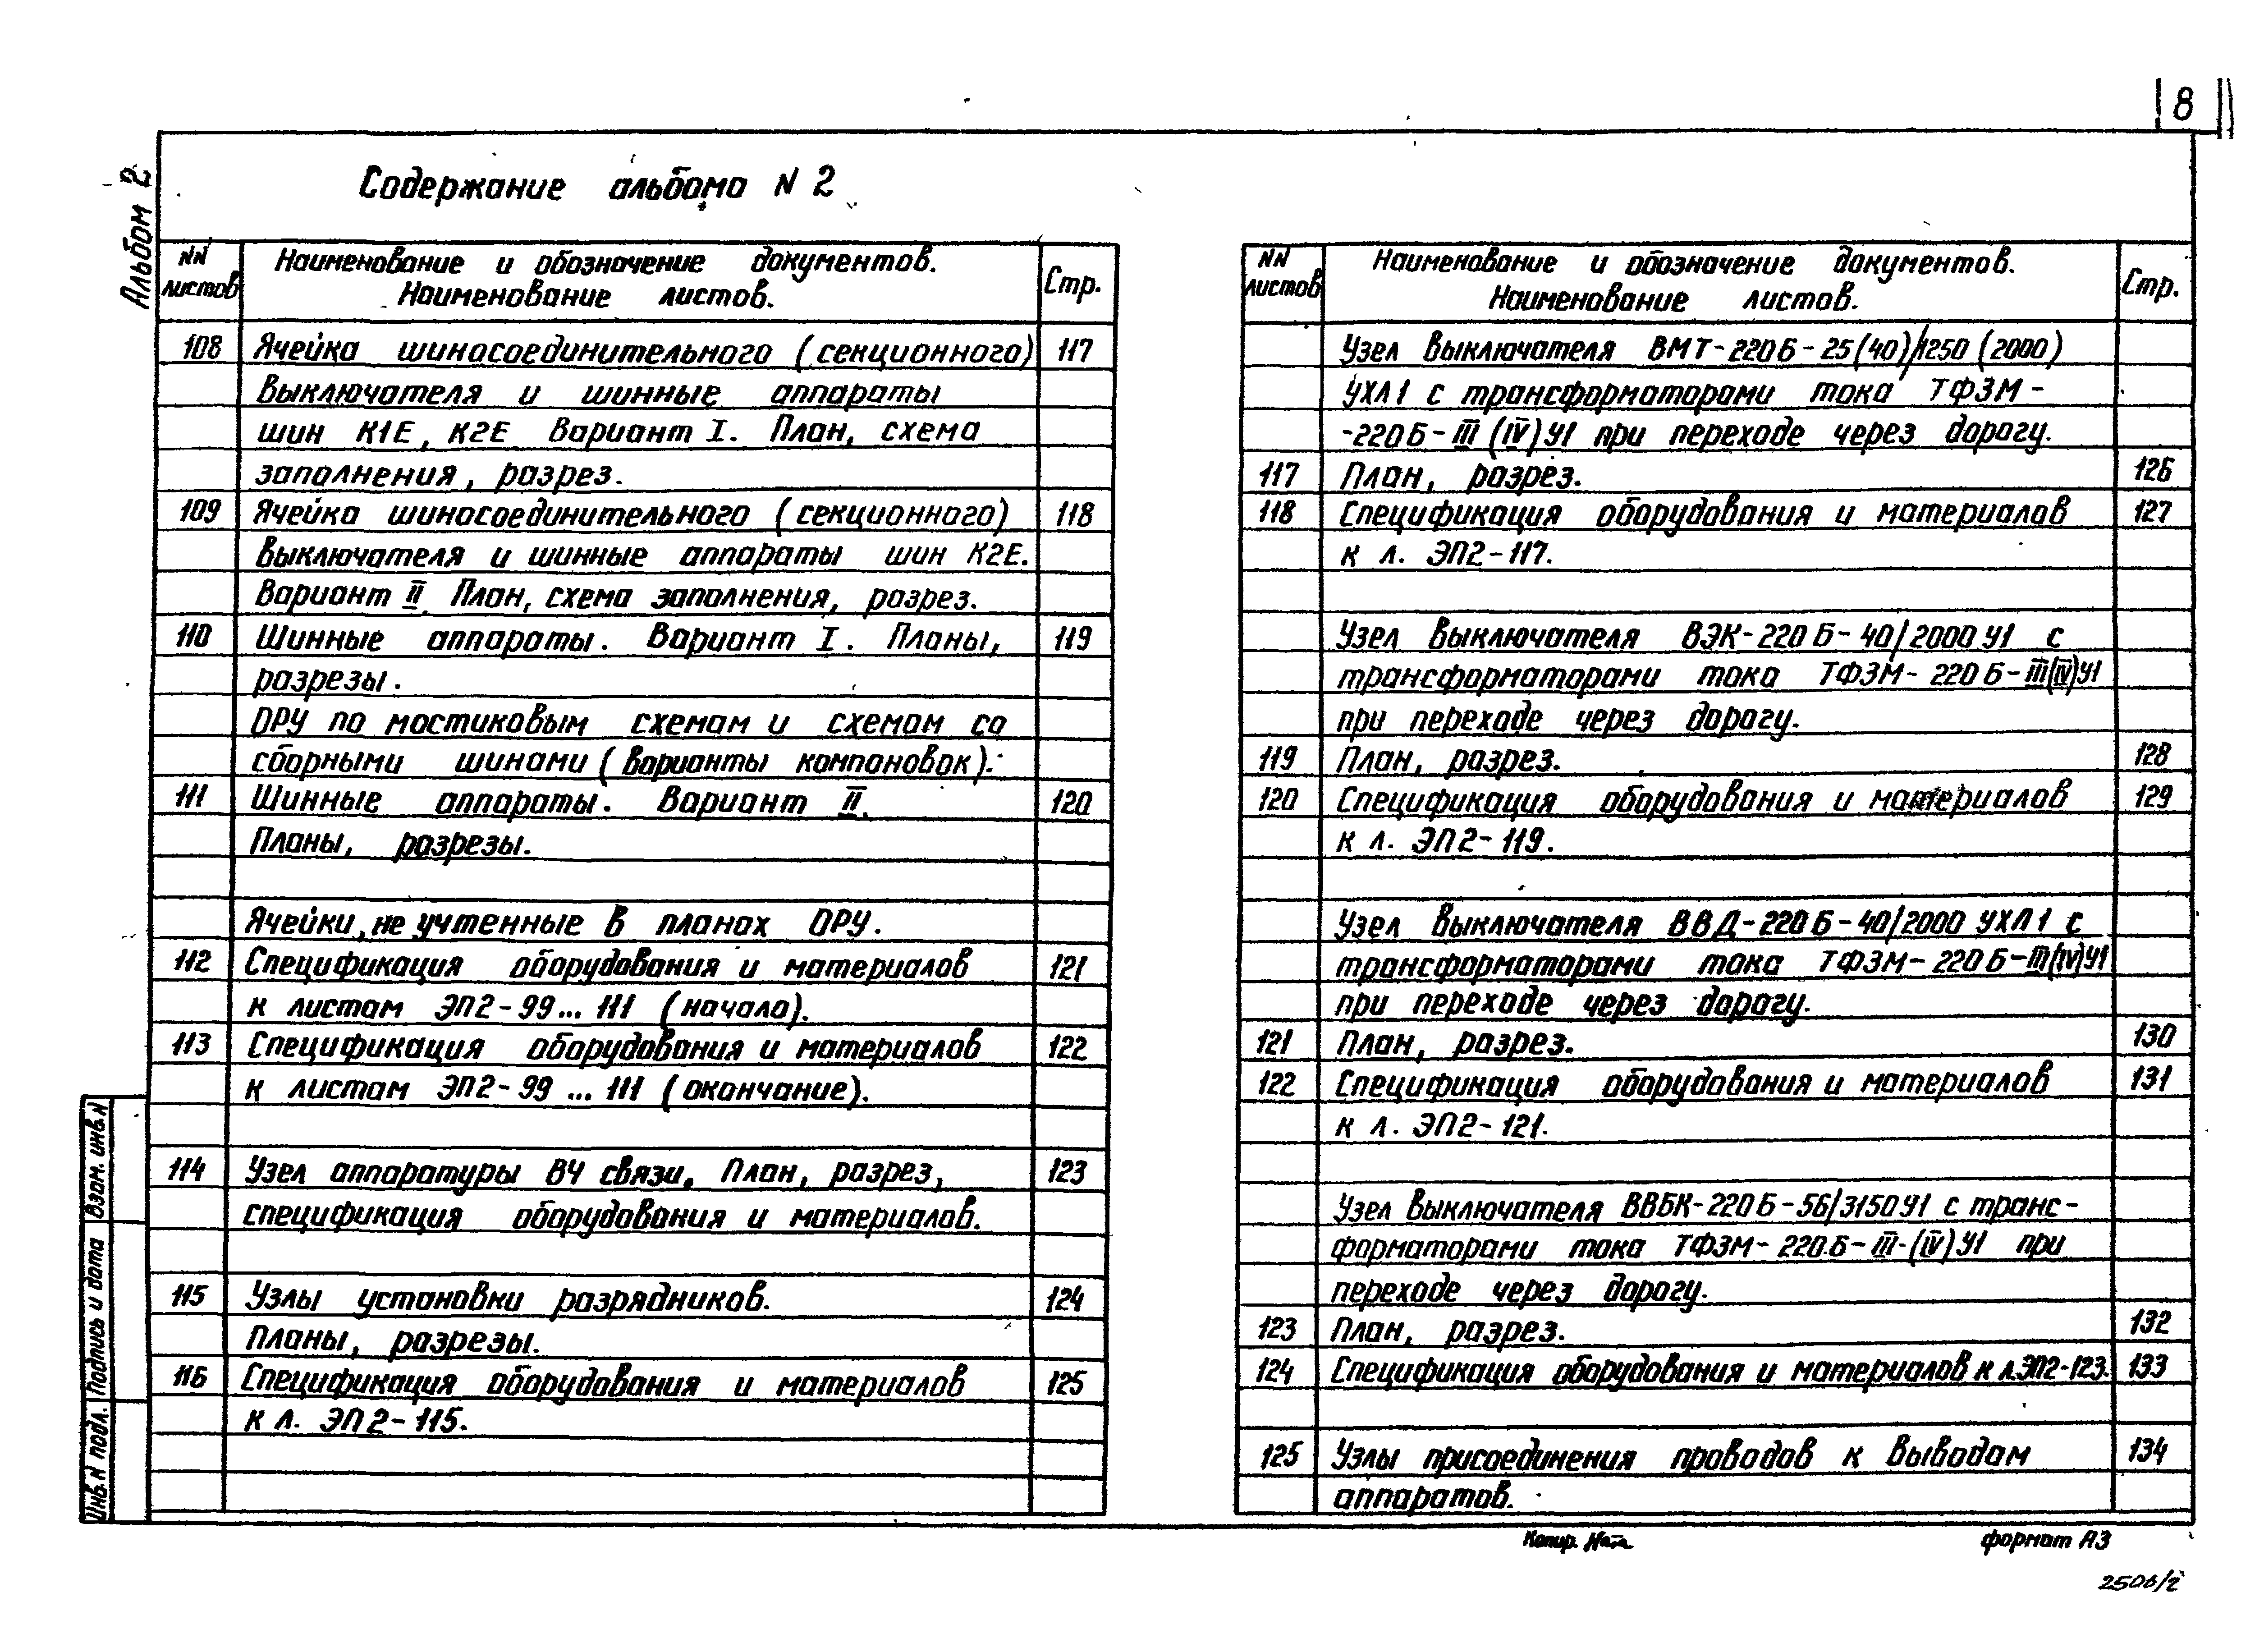 8
Альбом 2
Содержание альбома N 2
NN листов
Наименование и обозначение документов.
Наименование листов.
Стр.
108 Ячейка шиносоединительного (секционного) 117
выключателя и шинные аппараты
шин К1Е, К2Е Вариант I. План, схема
заполнения, разрез.
109 Ячейка шиносоединительного (секционного) 118
выключателя и шинные аппараты шин К2Е.
Вариант II. План, схема заполнения, разрез.
110 Шинные аппараты. Вариант I. Планы, 119
разрезы.
ОРУ по мостиковым схемам и схемам со
сборными шинами (варианты компоновок):
111 Шинные аппараты. Вариант II. 120
Планы, разрезы.
Ячейки, не учтенные в планах ОРУ.
112 Спецификация оборудования и материалов 121
к листам ЭП2-99... 111 (начало).
113 Спецификация оборудования и материалов 122
к листам ЭП2-99 ... 111 (окончание).
114 Узел аппаратуры ВЧ связи. План, разрез, 123
спецификация оборудования и материалов.
115 Узлы установки разрядников. 124
Планы, разрезы.
116 Спецификация оборудования и материалов 125
к л. ЭП2-115.
NN листов
Наименование и обозначение документов.
Наименование листов.
Стр.
Узел выключателя ВМТ-220Б-25(40)/1250 (2000)
УХЛ1 с трансформаторами тока ТФЗМ-
-220Б-III (IV) У1 при переходе через дорогу.
117 План, разрез. 126
118 Спецификация оборудования и материалов 127
к л. ЭП2-117.
Узел выключателя ВЭК-220Б-40/2000 У1 с
трансформаторами тока ТФЗМ-220Б-III(IV)У1
при переходе через дорогу.
119 План, разрез. 128
120 Спецификация оборудования и материалов 129
к л. ЭП2-119.
Узел выключателя ВВД-220Б-40/2000 УХЛ1 с
трансформаторами тока ТФЗМ-220Б-III(IV)У1
при переходе через дорогу.
121 План, разрез. 130
122 Спецификация оборудования и материалов 131
к л. ЭП2-121.
Узел выключателя ВВБК-220Б-56/3150У1 с транс-
форматорами тока ТФЗМ-220.Б-III-(IV) У1 при
переходе через дорогу.
123 План, разрез. 132
124 Спецификация оборудования и материалов к л.ЭП2-123. 133
125 Узлы присоединения проводов к выводам 134
аппаратов.
Взам. инв.N
Подпись и дата
Инв.N подл.
Копир. Ната
формат А3
2506/2